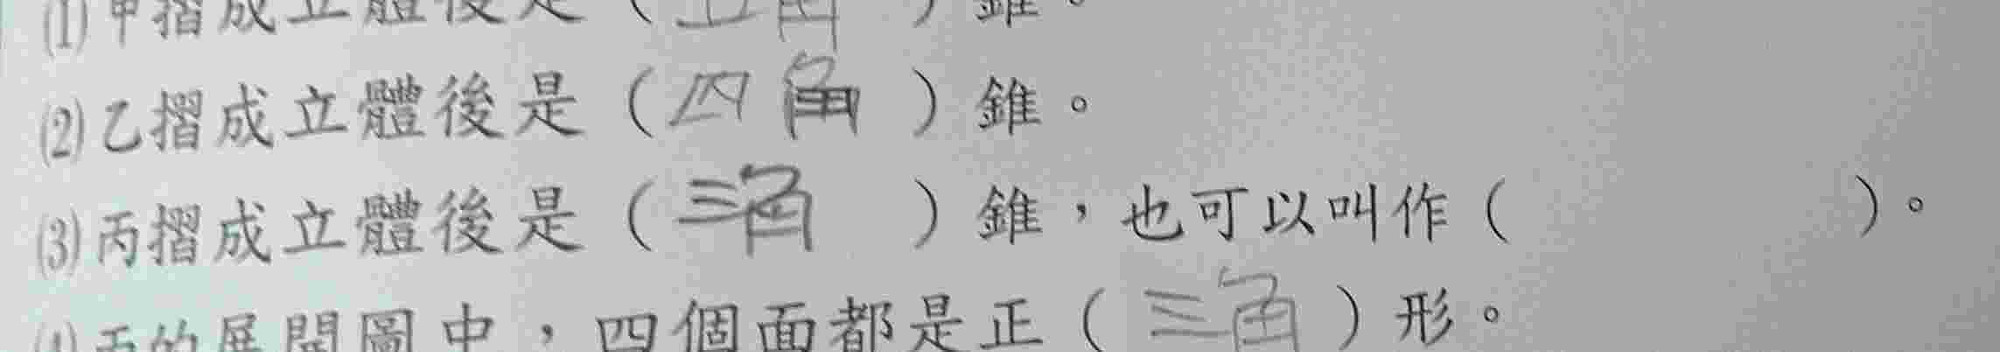 (1)甲摺成立體後是（五角）錐。
(2)乙摺成立體後是（四角）錐。
(3)丙摺成立體後是（三角）錐，也可以叫作（ ）。
(4)丙的展開圖中，四個面都是正（三角）形。